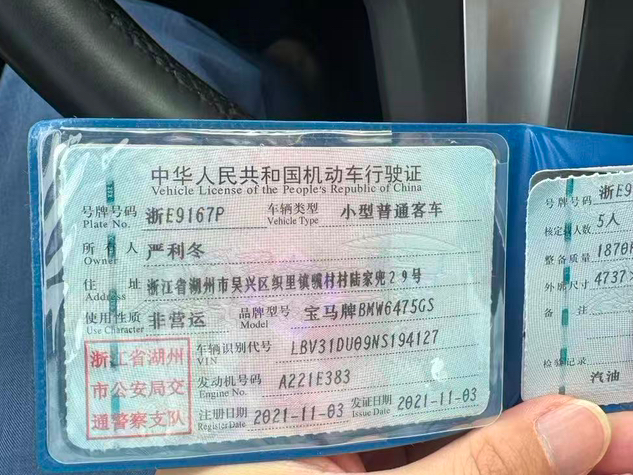 中华人民共和国机动车行驶证
Vehicle License of the People's Republic of China
号牌号码 浙E9167P 车辆类型 小型普通客车
Plate No. Vehicle Type
所有人 严利冬
Owner
住址 浙江省湖州市吴兴区织里镇 村村陆家兜29号
Address
使用性质 非营运 品牌型号 宝马牌BMW6475GS
Use Character Model
浙江省湖州
市公安局交
通警察支队
车辆识别代号 LBV31DU09NS194127
VIN
发动机号码 A221E383
Engine No.
注册日期 2021-11-03 发证日期 2021-11-03
Register Date Issue Date
号牌号码 浙E9
核定载人数 5人
整备质量 1870
外廓尺寸 4737
备注
检验记录
汽油